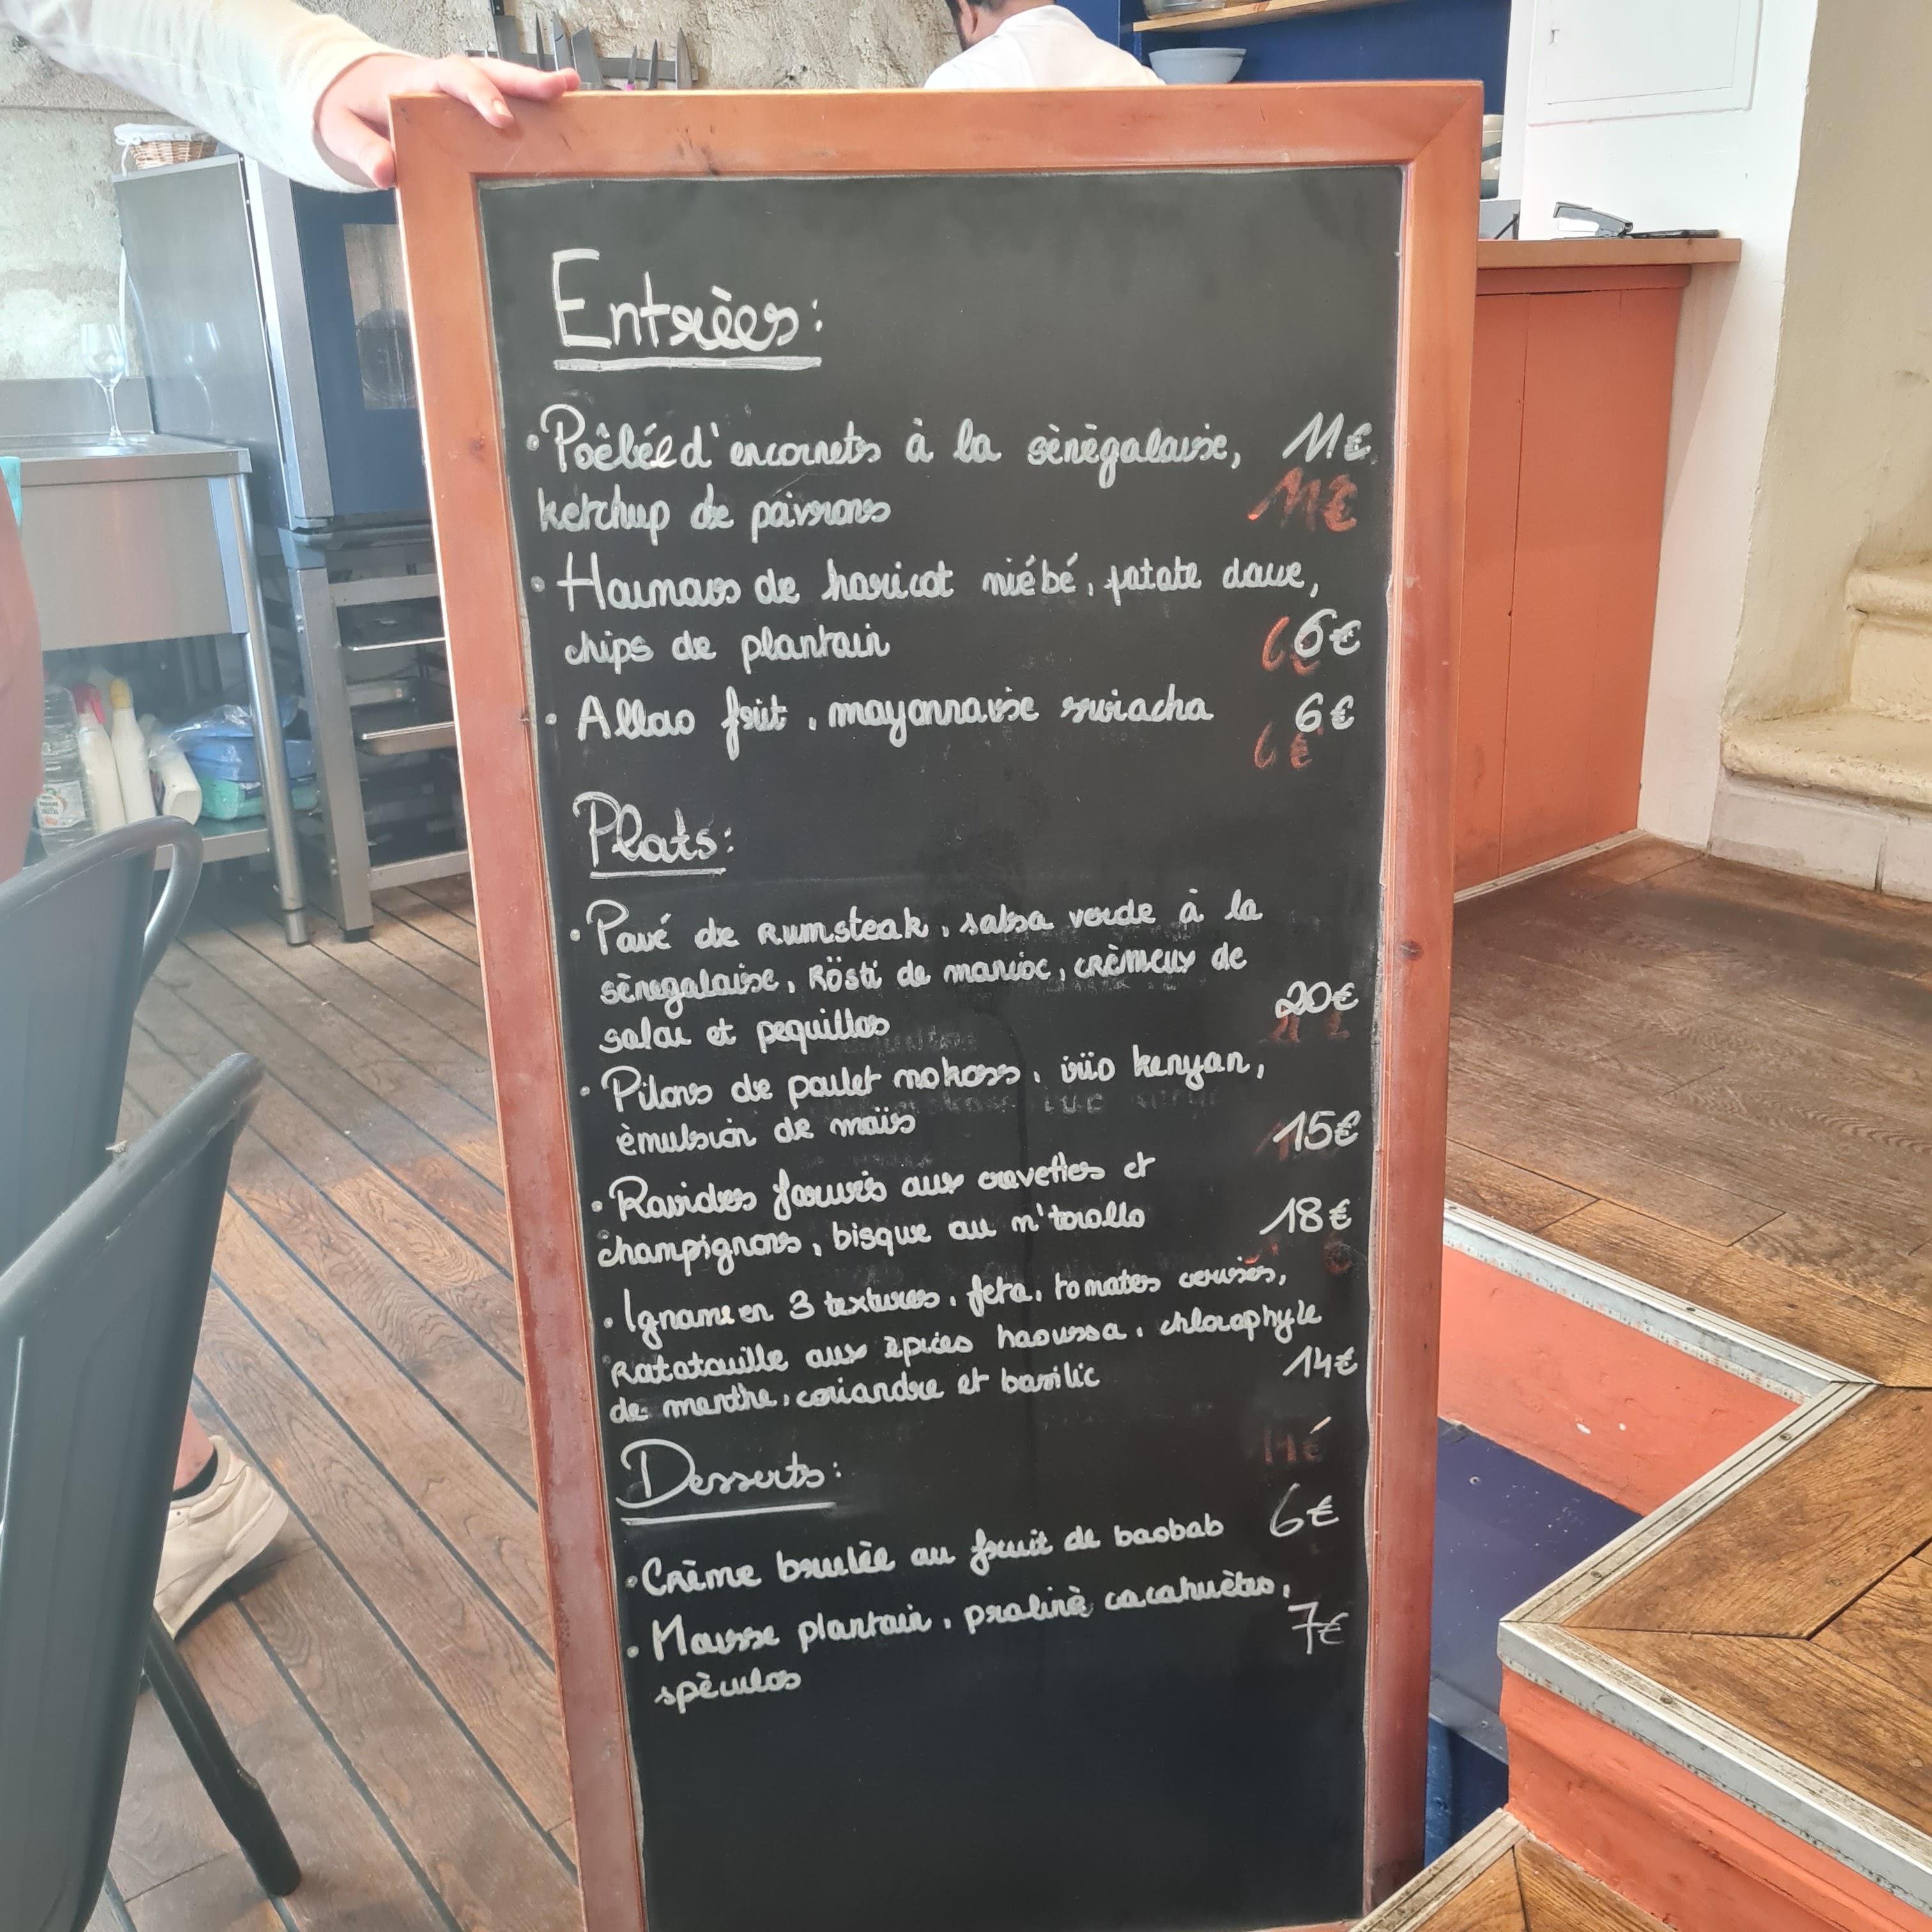 Entrèes:
• Poêléed'encornets à la sènègalaise, 11€
ketchup de poivrons 11€
• Houmous de haricot niébé, patate douce,
chips de plantain 6€
• Alloco frit, mayonnaise sriracha 6€
6€
Plats:
• Pavé de rumsteak, salsa verde à la
sènegalaise, Rösti de manioc, crèmeux de
salai et pequillos 20€
• Pilons de poulet mokoss, vijo kenyan,
èmulsion de maïs 15€
• Ravioles farcies aux crevettes et
champignons, bisque au n'torollo 18€
• Igname en 3 textures, feta, tomates cerises,
Ratatouille aux èpices haoussa, chlorophyle
de menthe, coriandre et basilic 14€
Desserts:
• Crème brulèe au fruit de baobab 6€
• Mousse plantain, pralinè cacahuètes,
spèculos 7€